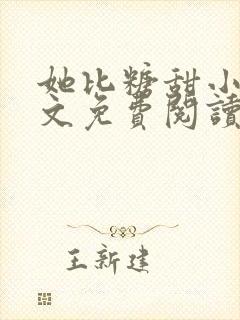 她比糖甜小
文免費閱讀
王新建